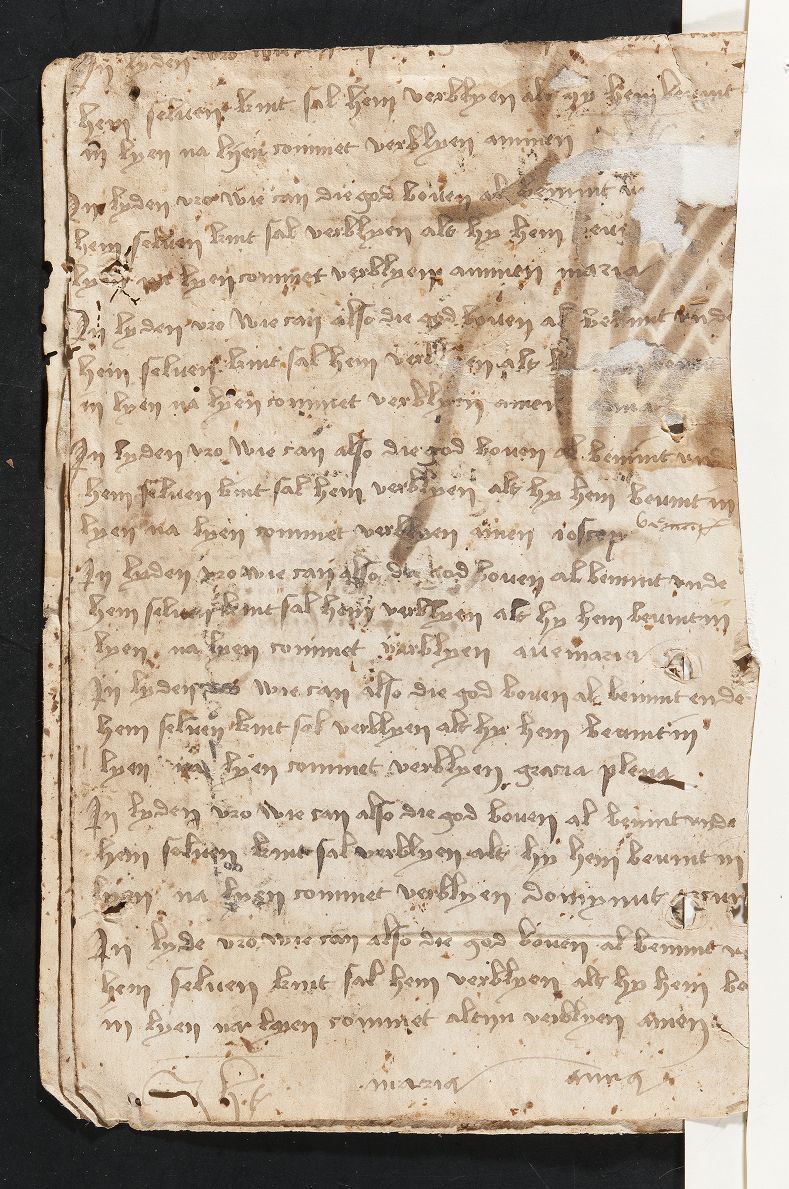 In lyden vro
hem seluen kint sal hem verblyen als hy hem beuint
in lyen na lyen commet verblyen ammen
In lyden vro wie can die god bouen al bemint
hem seluen kint sal verblyen als hy hem
lyen commet verblyen ammen maria
In lyden vro wie can also die god bouen al bemint vnde
hem seluen kint sal hem als
in lyen na lyen commet verblyen amen
In lyden vro wie can also die god bouen al bemint vnd
hem seluen kint sal hem verblyen als hy hem beuint in
lyen na lyen commet verblyen amen iosep
In lyden vro wie can also die god bouen al bemint vnde
hem seluen kint sal hem verblyen als hy hem beuint in
lyen na lyen commet verblyen aue maria
In lyden wie can also die god bouen al bemint ende
hem seluen kint sal verblyen als hy hem beuint in
lyen na lyen commet verblyen gracia plena
In lyden vro wie can also die god bouen al bemint vnde
hem seluen kint sal verblyen als hy hem beuint in
lyen na lyen commet verblyen domynus
In lyde vro wie can also die god bouen al bemint
hem seluen kint sal hem verblyen als hy hem be
in lyen na lyen commet altyn verblyen amen
maria anna